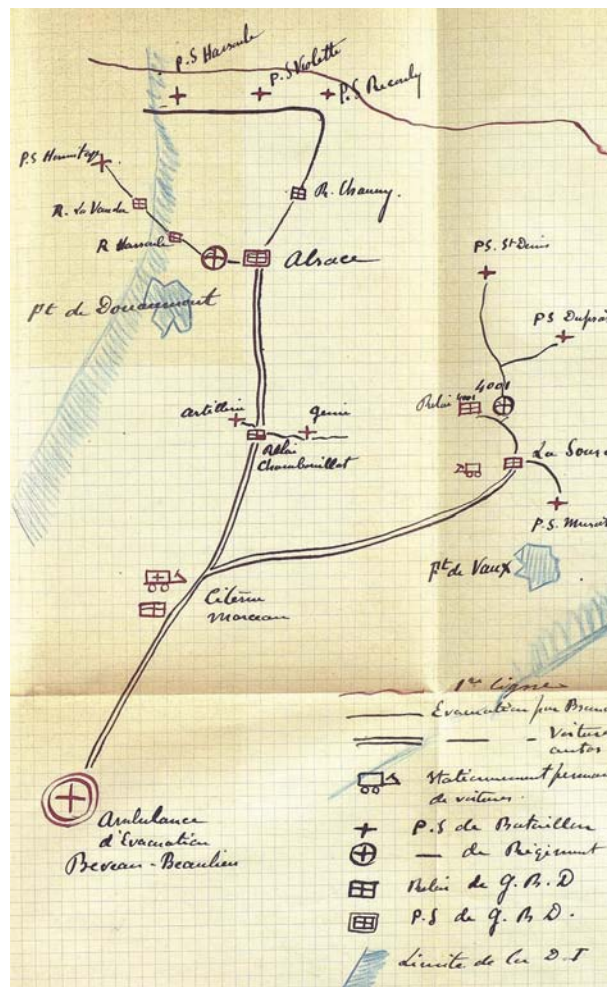 P.S Hassoule
P.S Violette
P.S Recouly
P.S Hermitage
R. La Vauche
R. Hassoule
R. Chauny.
Alsace
Ft de Douaumont
PS. St Denis
PS Duprat
artillerie
Genie
Relai
Chambouillat
4001
Relai 4001
La Sour
P.S. Murat
Ft de Vaux
Citerne
Marceau
Ambulance
d'Evacuation
Beveau-Beaulieu
1re Ligne
Evacuation par Branc
— — Voiture
autos
Stationnement perman
de voitures.
P.S de Bataillon
— de Régiment
Relai de G.B.D
P.S de G.B.D.
Limite de la D.I